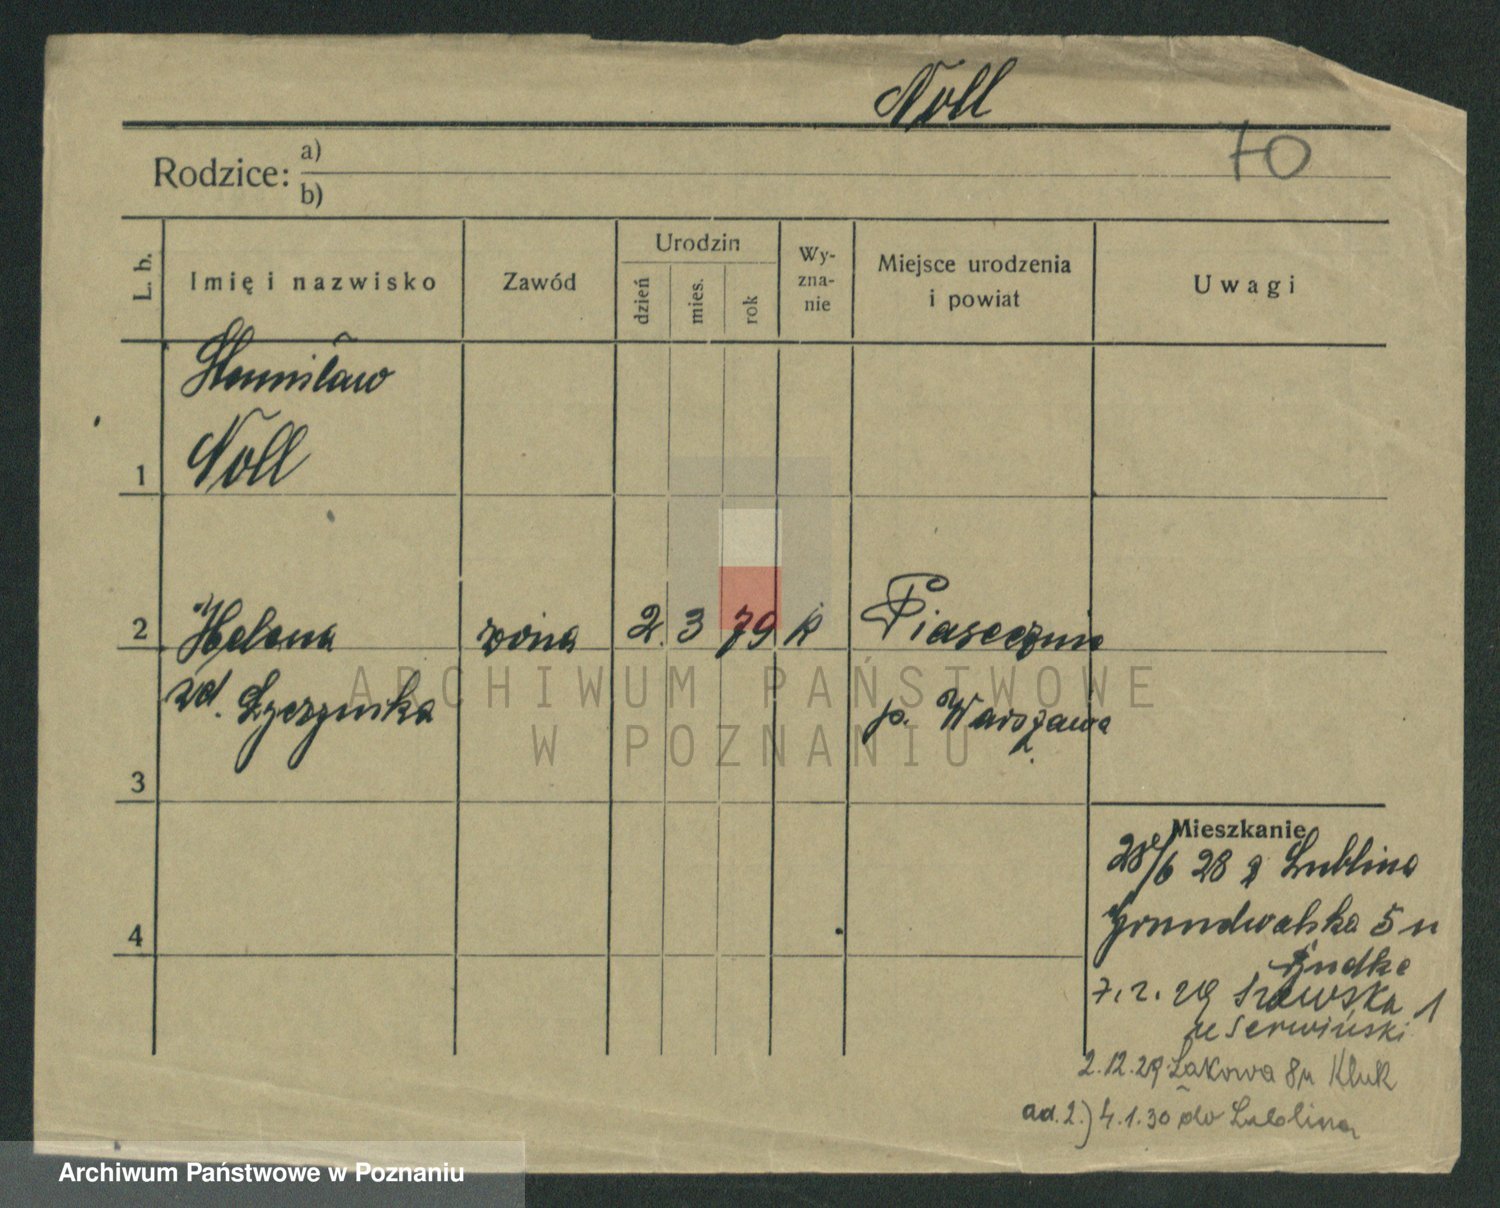 Noll
70
Rodzice: a)
b)
L. b.
Imię i nazwisko
Zawód
Urodzin
dzień
mies.
rok
Wy-
zna-
nie
Miejsce urodzenia
i powiat
Uwagi
Stanisław
Noll
1
2 Helena żona 2. 3 79 k Piaseczno
zd.
p. Warszawa
3
Mieszkanie
28/6 28 z Lublina
Grunwaldzka 5 u
4
7. 2. 29 1
u Serwiński
2.12.29 Łąkowa 8 u Kluk
ad. 2.) 4.1.30 do Lublina
ARCHIWUM PAŃSTWOWE
W POZNANIU
Archiwum Państwowe w Poznaniu